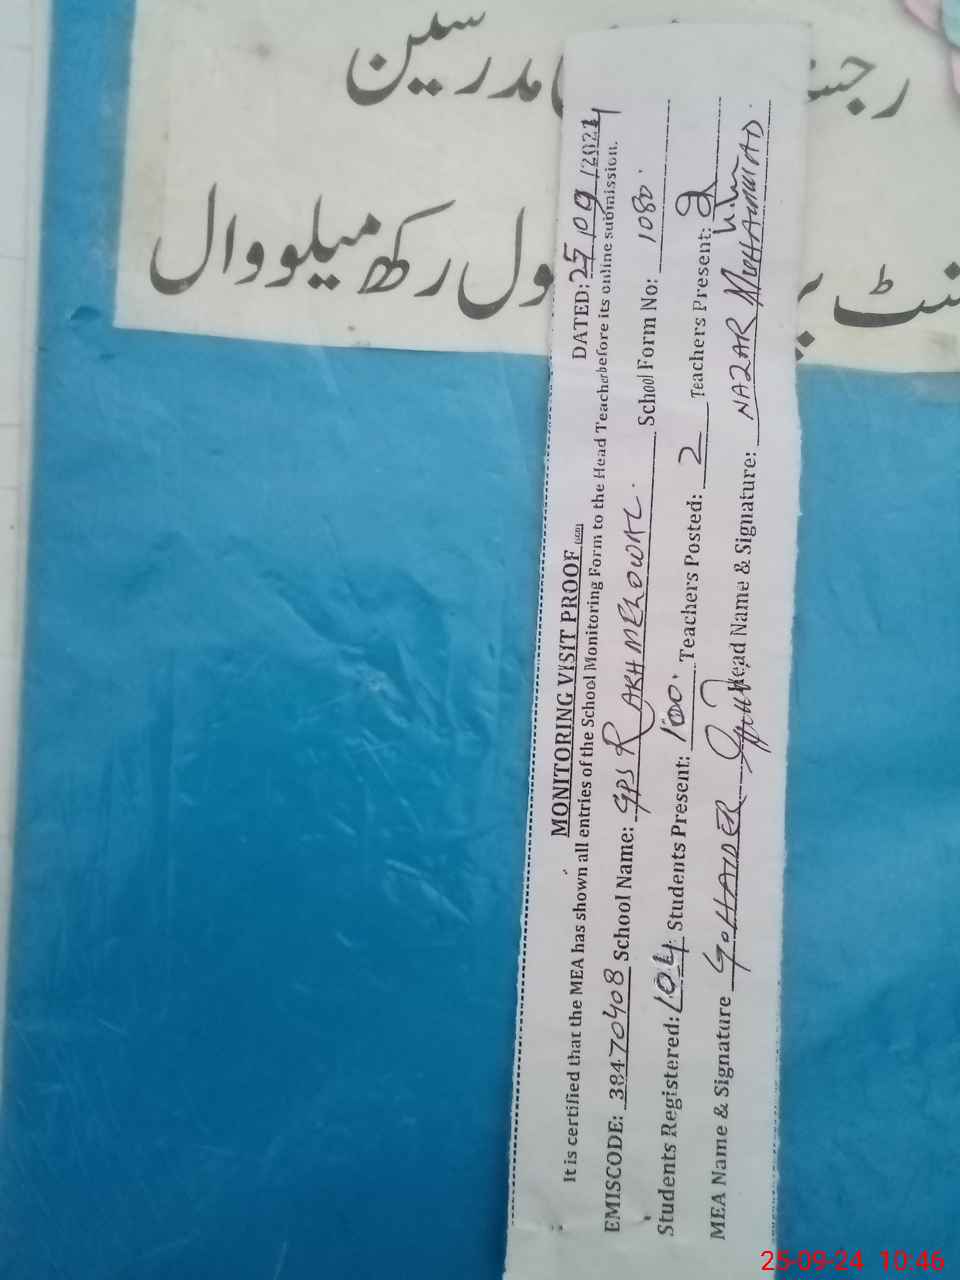 رجس مدرسین
نٹ پر ول رکھ میلووال
MONITORING VISIT PROOF
DATED: 25/09/2024
It is certified that the MEA has shown all entries of the School Monitoring Form to the Head Teacher before its online submission.
EMISCODE: 38470408 School Name: GPS RAKH MELOWAL. School Form No: 1080.
Students Registered: 104 Students Present: 100. Teachers Posted: 2 Teachers Present: 2
MEA Name & Signature G. HAIDER Head Name & Signature: NAZAR MUHAMMAD.
25-09-24 10:46